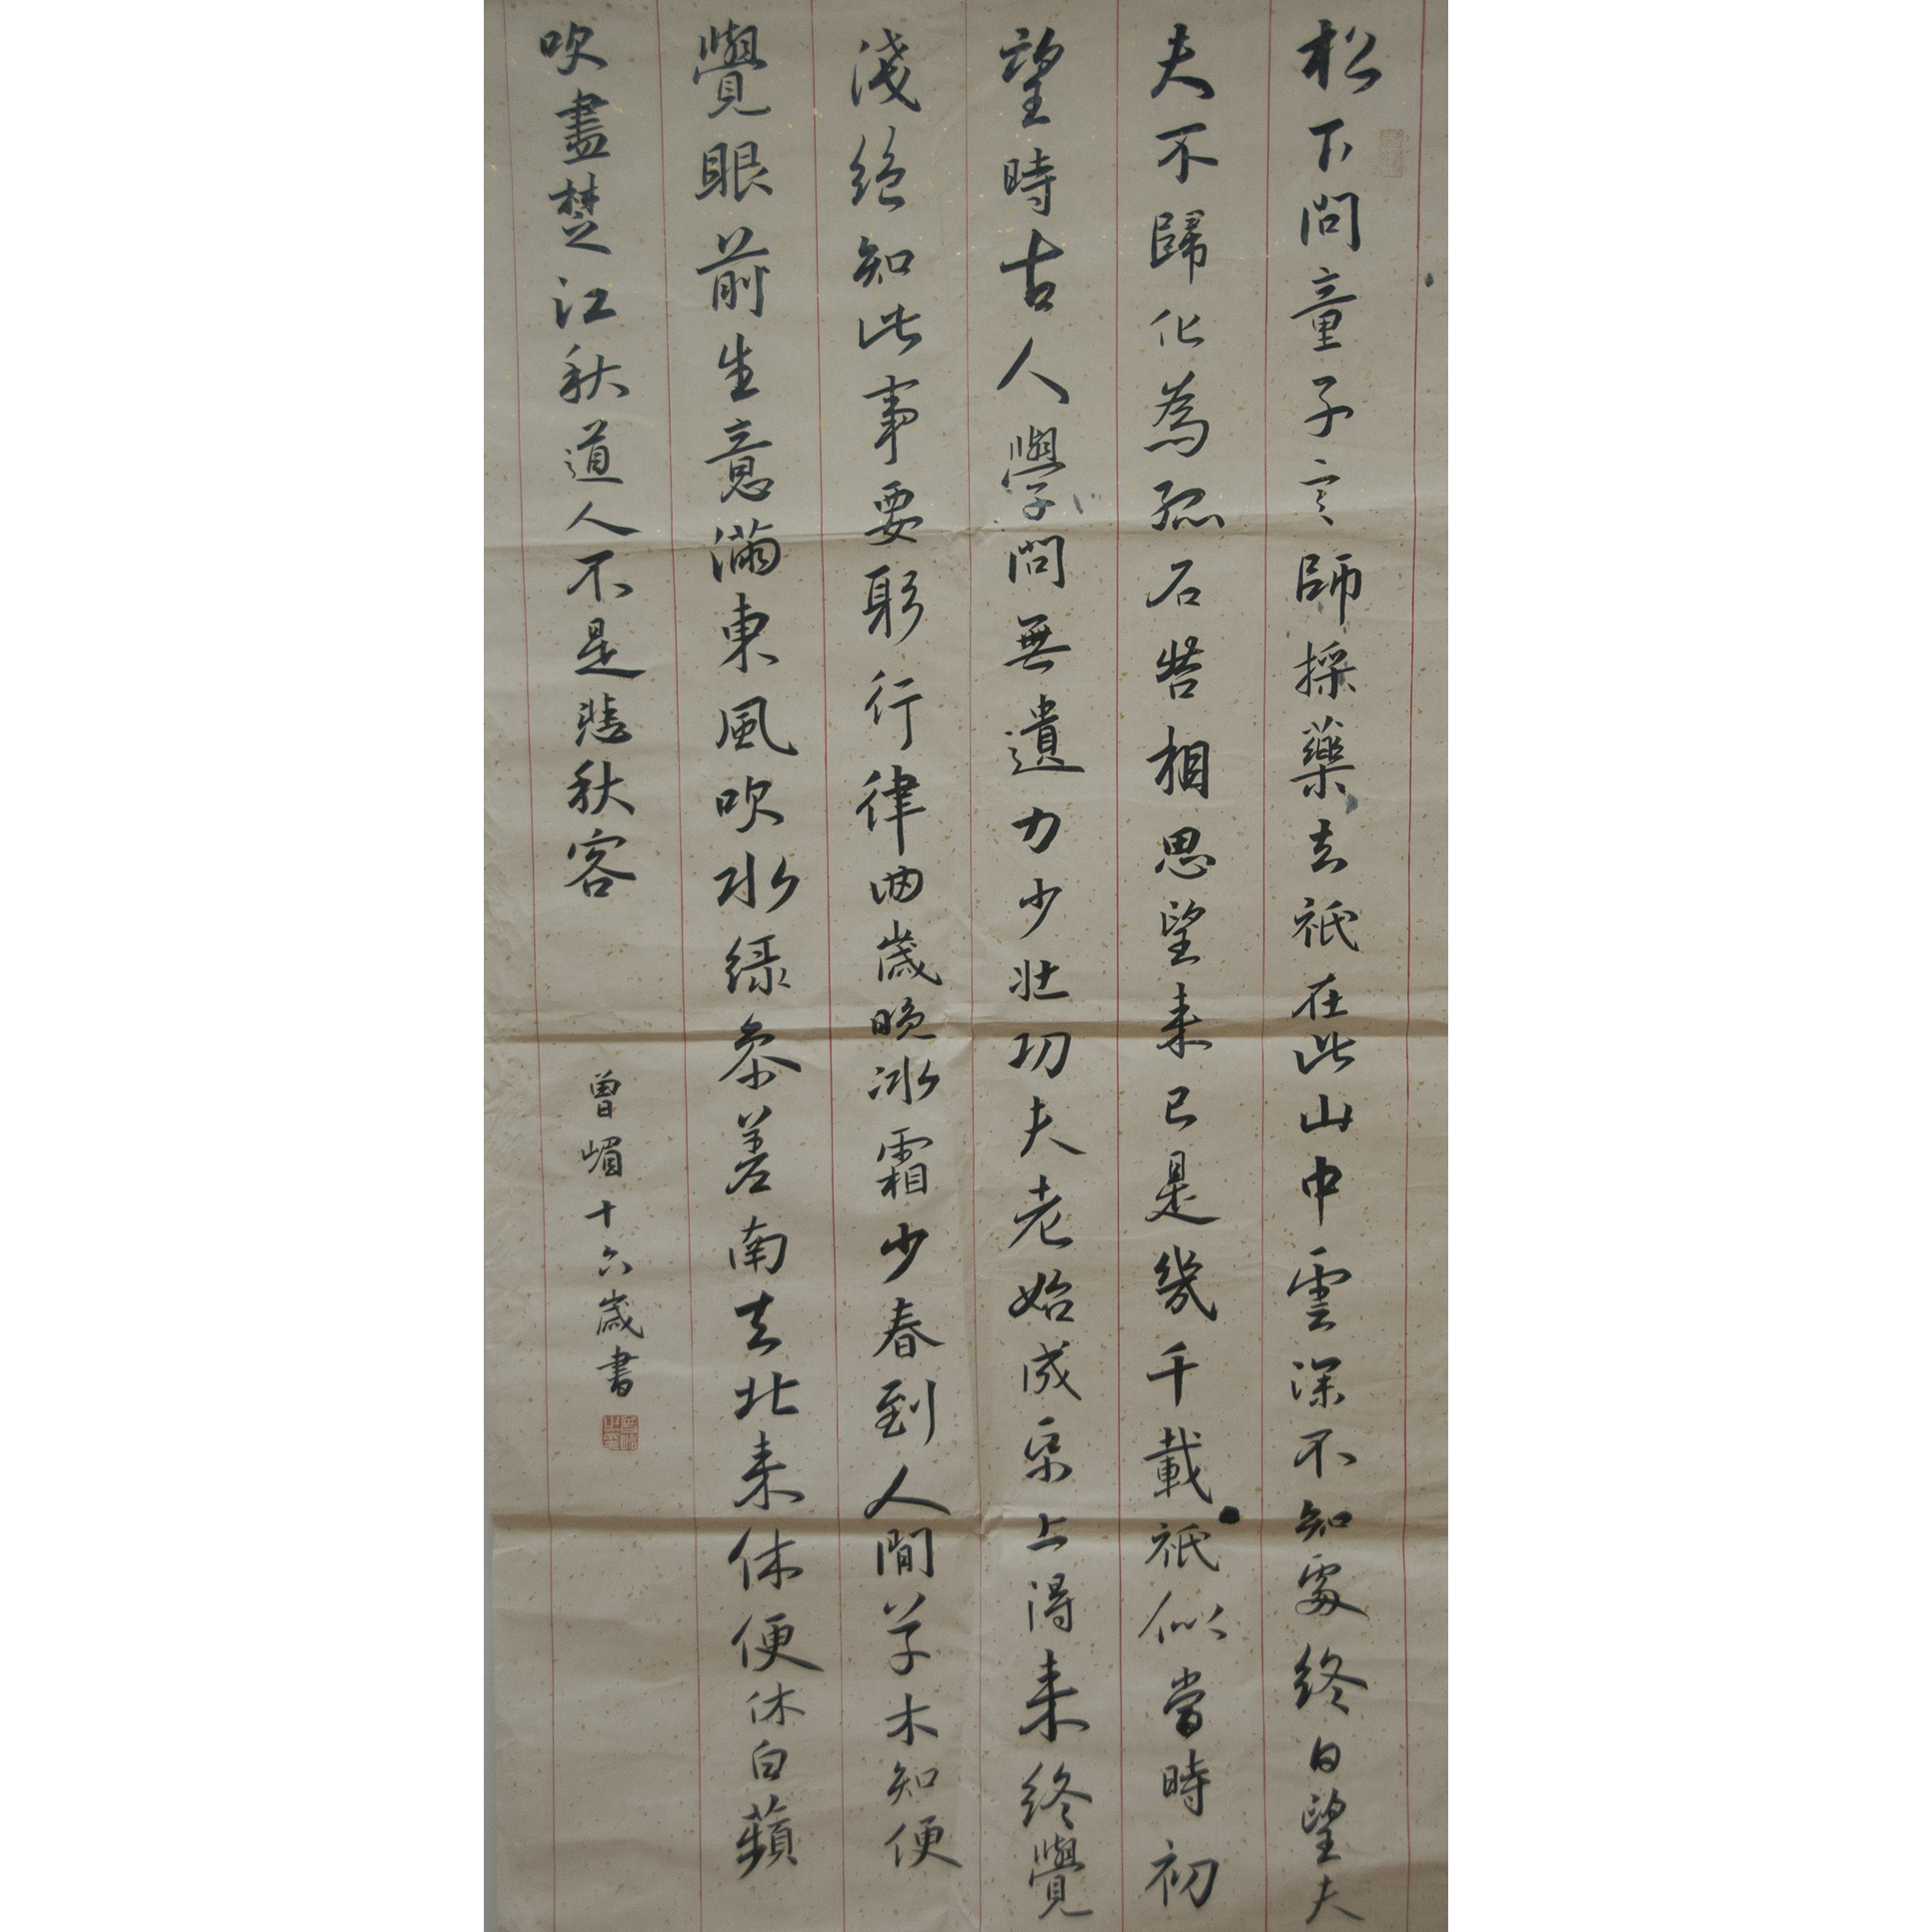 松下問童子言師採藥去祇在此山中雲深不知處終日望夫
夫不歸化為孤石苦相思望来已是幾千載祇似當時初
望時古人學問無遺力少壯功夫老始成帋上得来終覺
淺絕知此事要躬行律回歲晚冰霜少春到人間草木知便
覺眼前生意滿東風吹水綠參差南去北来休便休白蘋
吹盡楚江秋道人不是悲秋客
曾嵋十六歲書